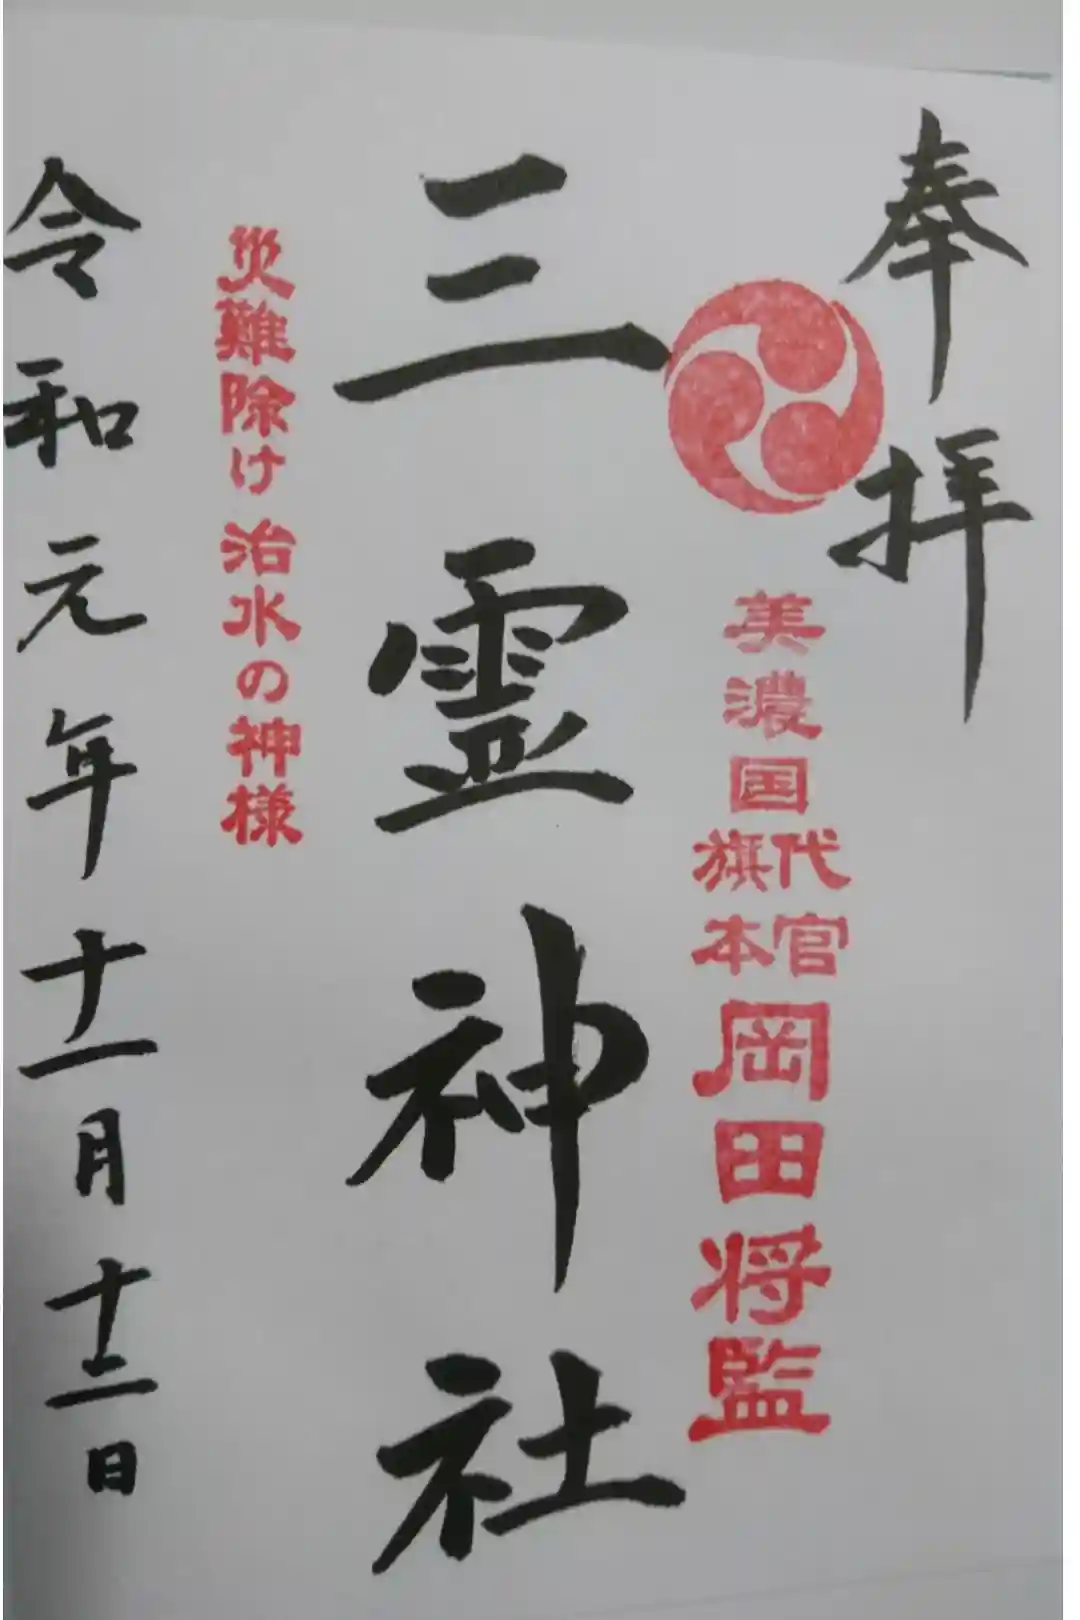 奉拝
美濃国代官旗本岡田将監
三霊神社
災難除け 治水の神様
令和元年十一月十二日